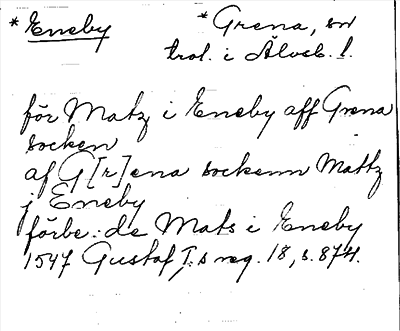 * Eneby * Grena, sn
trol. i Älvsb. l.
för Matz i Eneby aff Grena
socken
af G[r]ena sockenn Mattz
j Eneby
förbe: de Mats i Eneby
1547 Gustaf I:s reg. 18, s. 874.